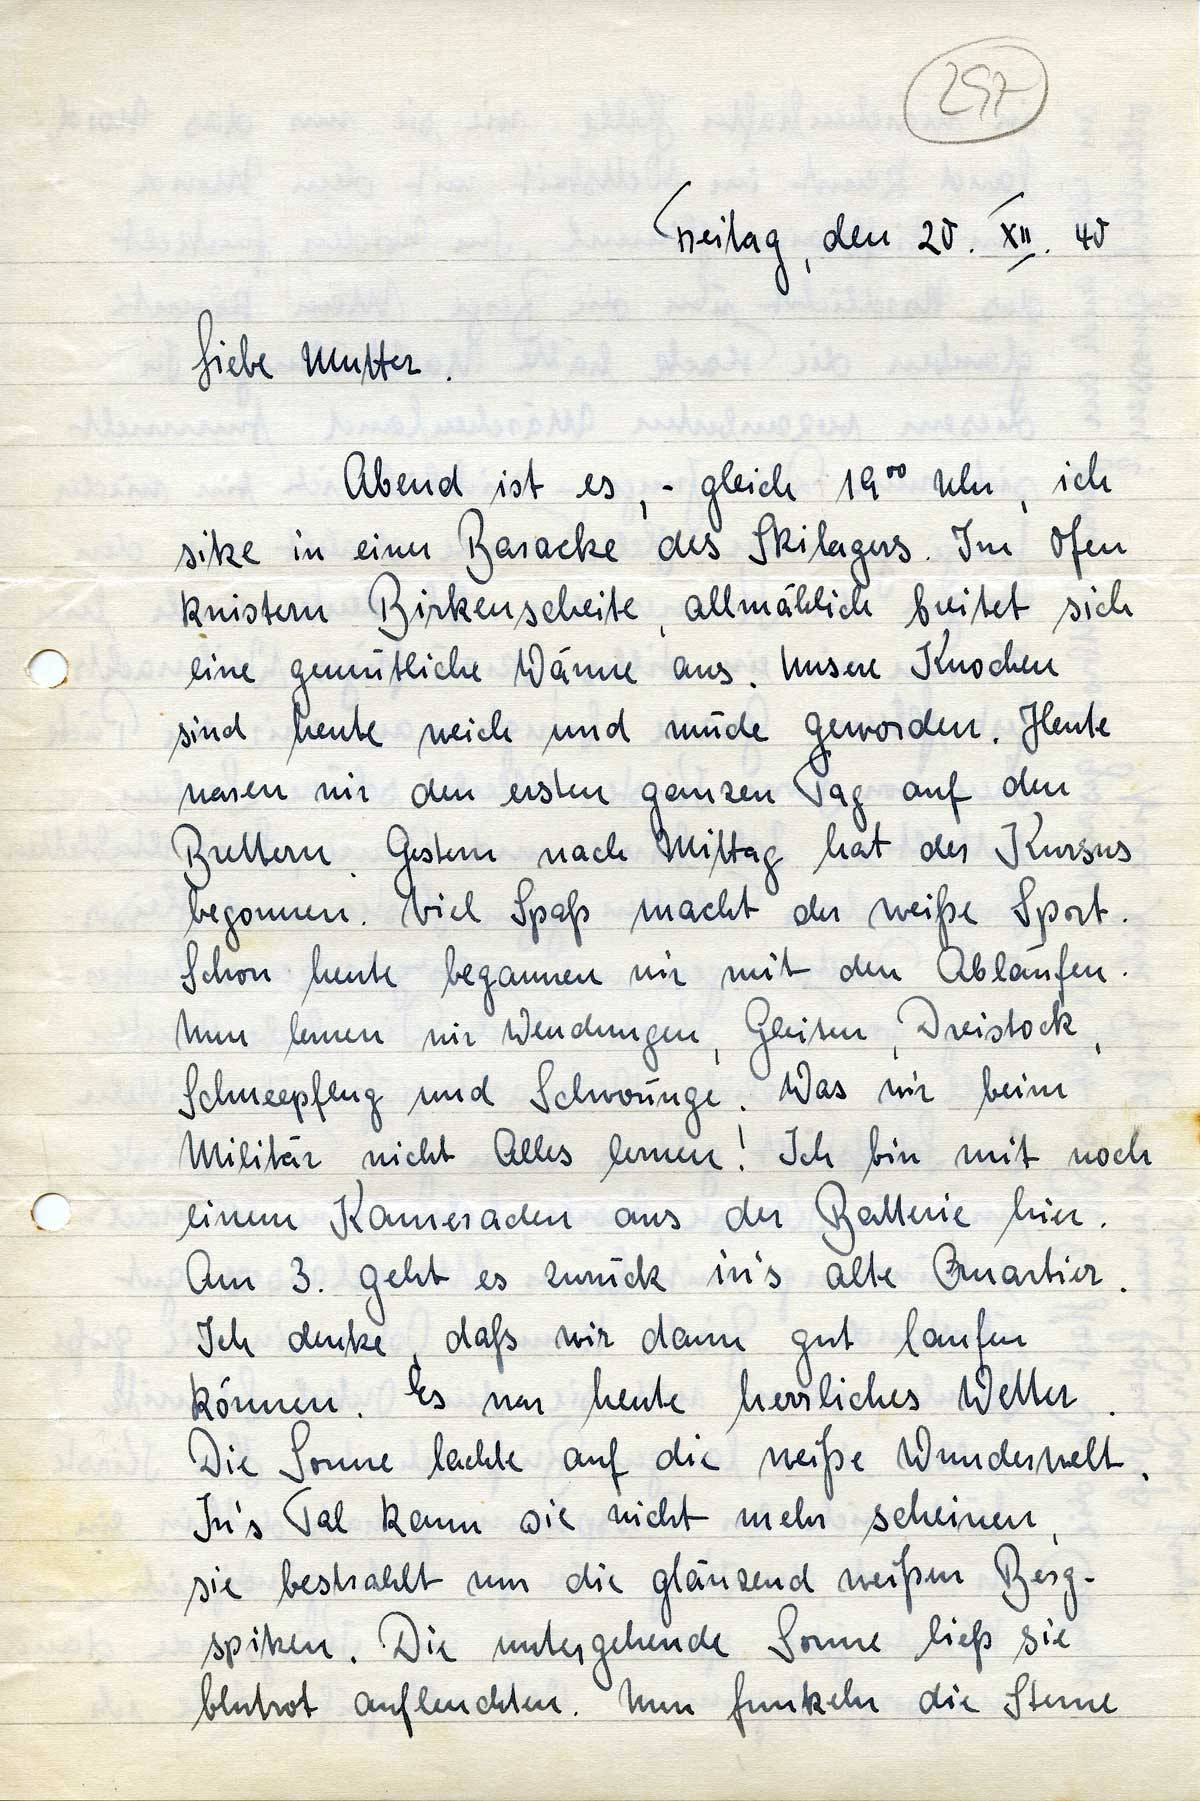 297.
Freitag, den 20. XII. 40
Liebe Mutter.
Abend ist es, - gleich 19⁰⁰ Uhr, ich
sitze in einer Baracke des Skilagers. Im Ofen
knistern Birkenscheite, allmählich breitet sich
eine gemütliche Wärme aus. Unsere Knochen
sind heute weich und müde geworden. Heute
waren wir den ersten ganzen Tag auf den
Brettern. Gestern nach Mittag hat der Kursus
begonnen. Viel Spaß macht der weiße Sport.
Schon heute begannen wir mit den Abläufen.
Nun lernen wir Wendungen, Gleiten, Dreistock,
Schneepflug und Schwünge. Was wir beim
Militär nicht Alles lernen! Ich bin mit noch
einem Kameraden aus der Batterie hier.
Am 3. geht es zurück in's alte Quartier.
Ich denke, daß wir dann gut laufen
können. Es war heute herrliches Wetter.
Die Sonne lachte auf die weiße Wunderwelt.
In's Tal kann sie nicht mehr scheinen,
sie bestrahlt nur die glänzend weißen Berg-
spitzen. Die untergehende Sonne ließ sie
blutrot aufleuchten. Nun funkeln die Sterne